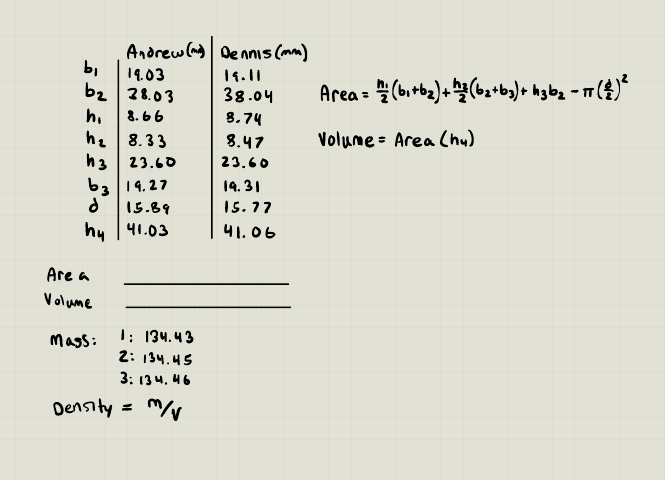 Andrew (md) Dennis (mm)
b₁ 19.03 19.11
b₂ 38.03 38.04
h₁ 8.66 8.74
h₂ 8.33 8.47
h₃ 23.60 23.60
b₃ 19.27 19.31
d 15.89 15.77
h₄ 41.03 41.06
Area = h₁/2 (b₁+b₂) + h₂/2 (b₂+b₃) + h₃b₂ - π(d/2)²
Volume = Area (h₄)
Area
Volume
Mass: 1: 134.43
2: 134.45
3: 134.46
Density = m/v